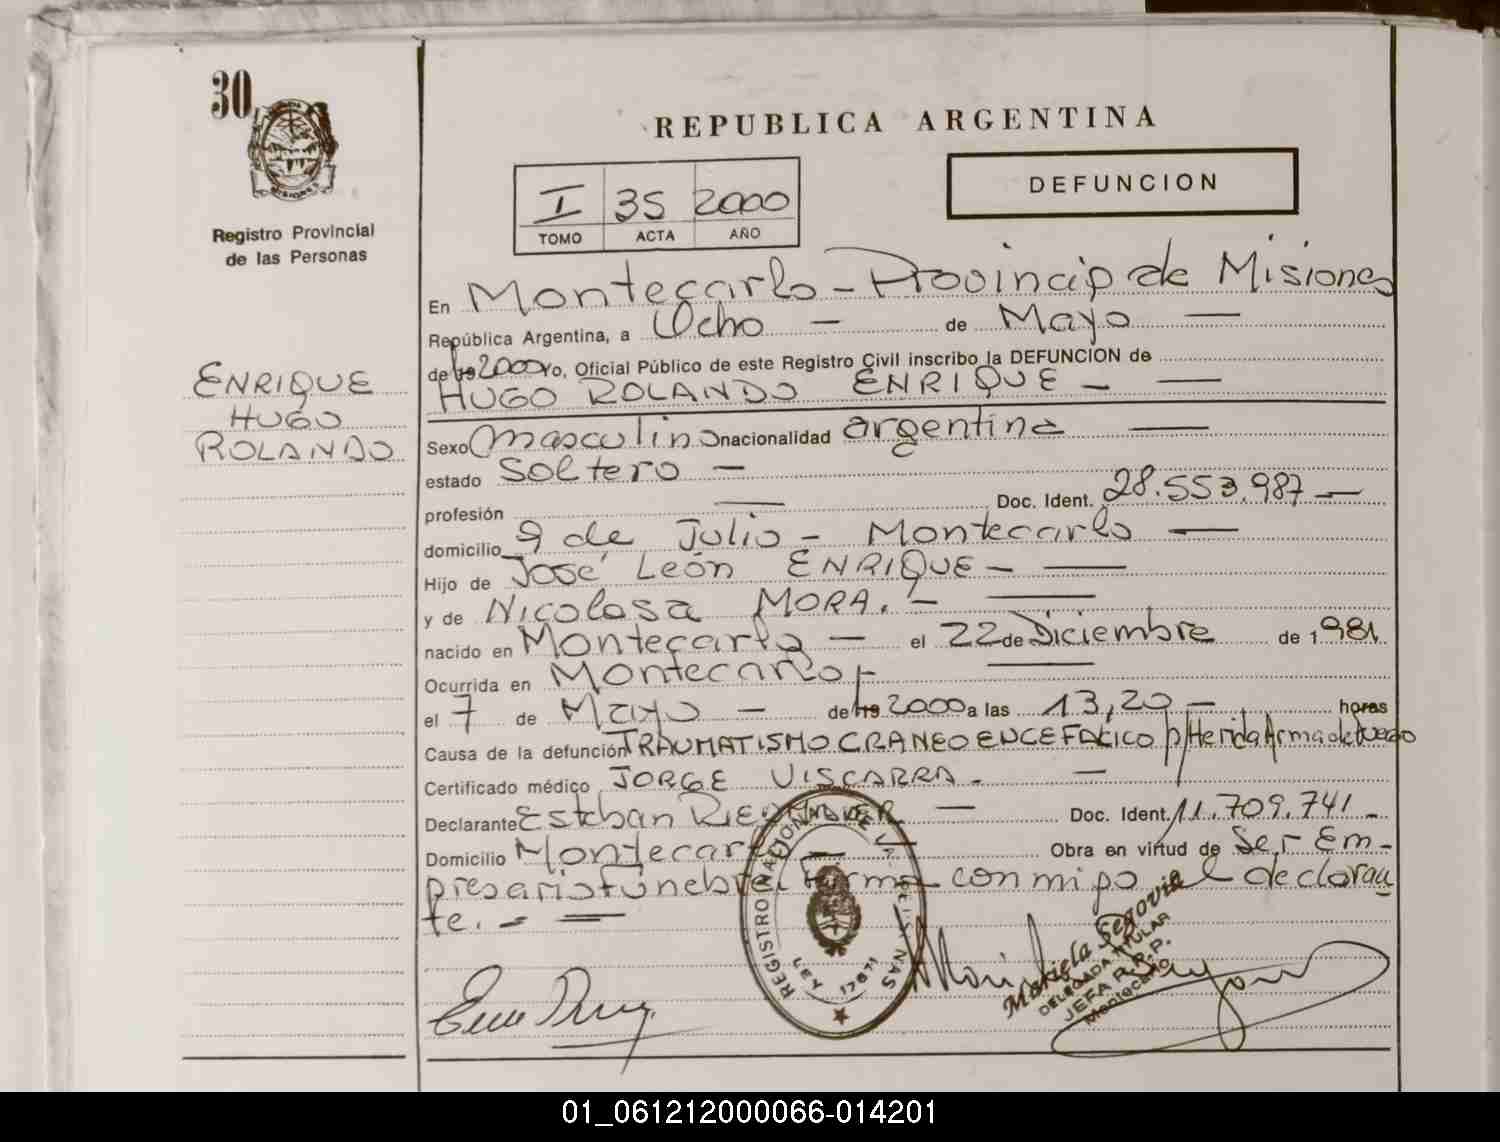 30
Registro Provincial
de las Personas
ENRIQUE
HUGO
ROLANDO
REPUBLICA ARGENTINA
I 35 2000
TOMO ACTA AÑO
DEFUNCION
En Montecarlo - Provincia de Misiones
República Argentina, a Ocho — de Mayo —
de 19 2000 Yo, Oficial Público de este Registro Civil inscribo la DEFUNCION de
HUGO ROLANDO ENRIQUE - —
Sexo masculino nacionalidad argentina —
estado Soltero —
profesión — Doc. Ident. 28.553.987 —
domicilio 9 de Julio - Montecarlo —
Hijo de José León ENRIQUE - —
y de Nicolasa MORA. - —
nacido en Montecarlo — el 22 de Diciembre de 1981
Ocurrida en Montecarlo - —
el 7 de Mayo — de 19 2000 a las 13,20 — horas
Causa de la defunción TRAUMATISMO CRANEOENCEFALICO p/Herida Arma de Fuego
Certificado médico JORGE VISCARRA - —
Declarante Esteban — Doc. Ident. 11.709.741 -
Domicilio Montecarlo — Obra en virtud de Ser Em-
presario fúnebre. Firma conmigo el declaran
te. - =
REGISTRO NACIONAL DE LAS PERSONAS
LEY 17671
Mariela Segovia
DELEGADA TITULAR
JEFA R.R.P.
Montecarlo
01_061212000066-014201